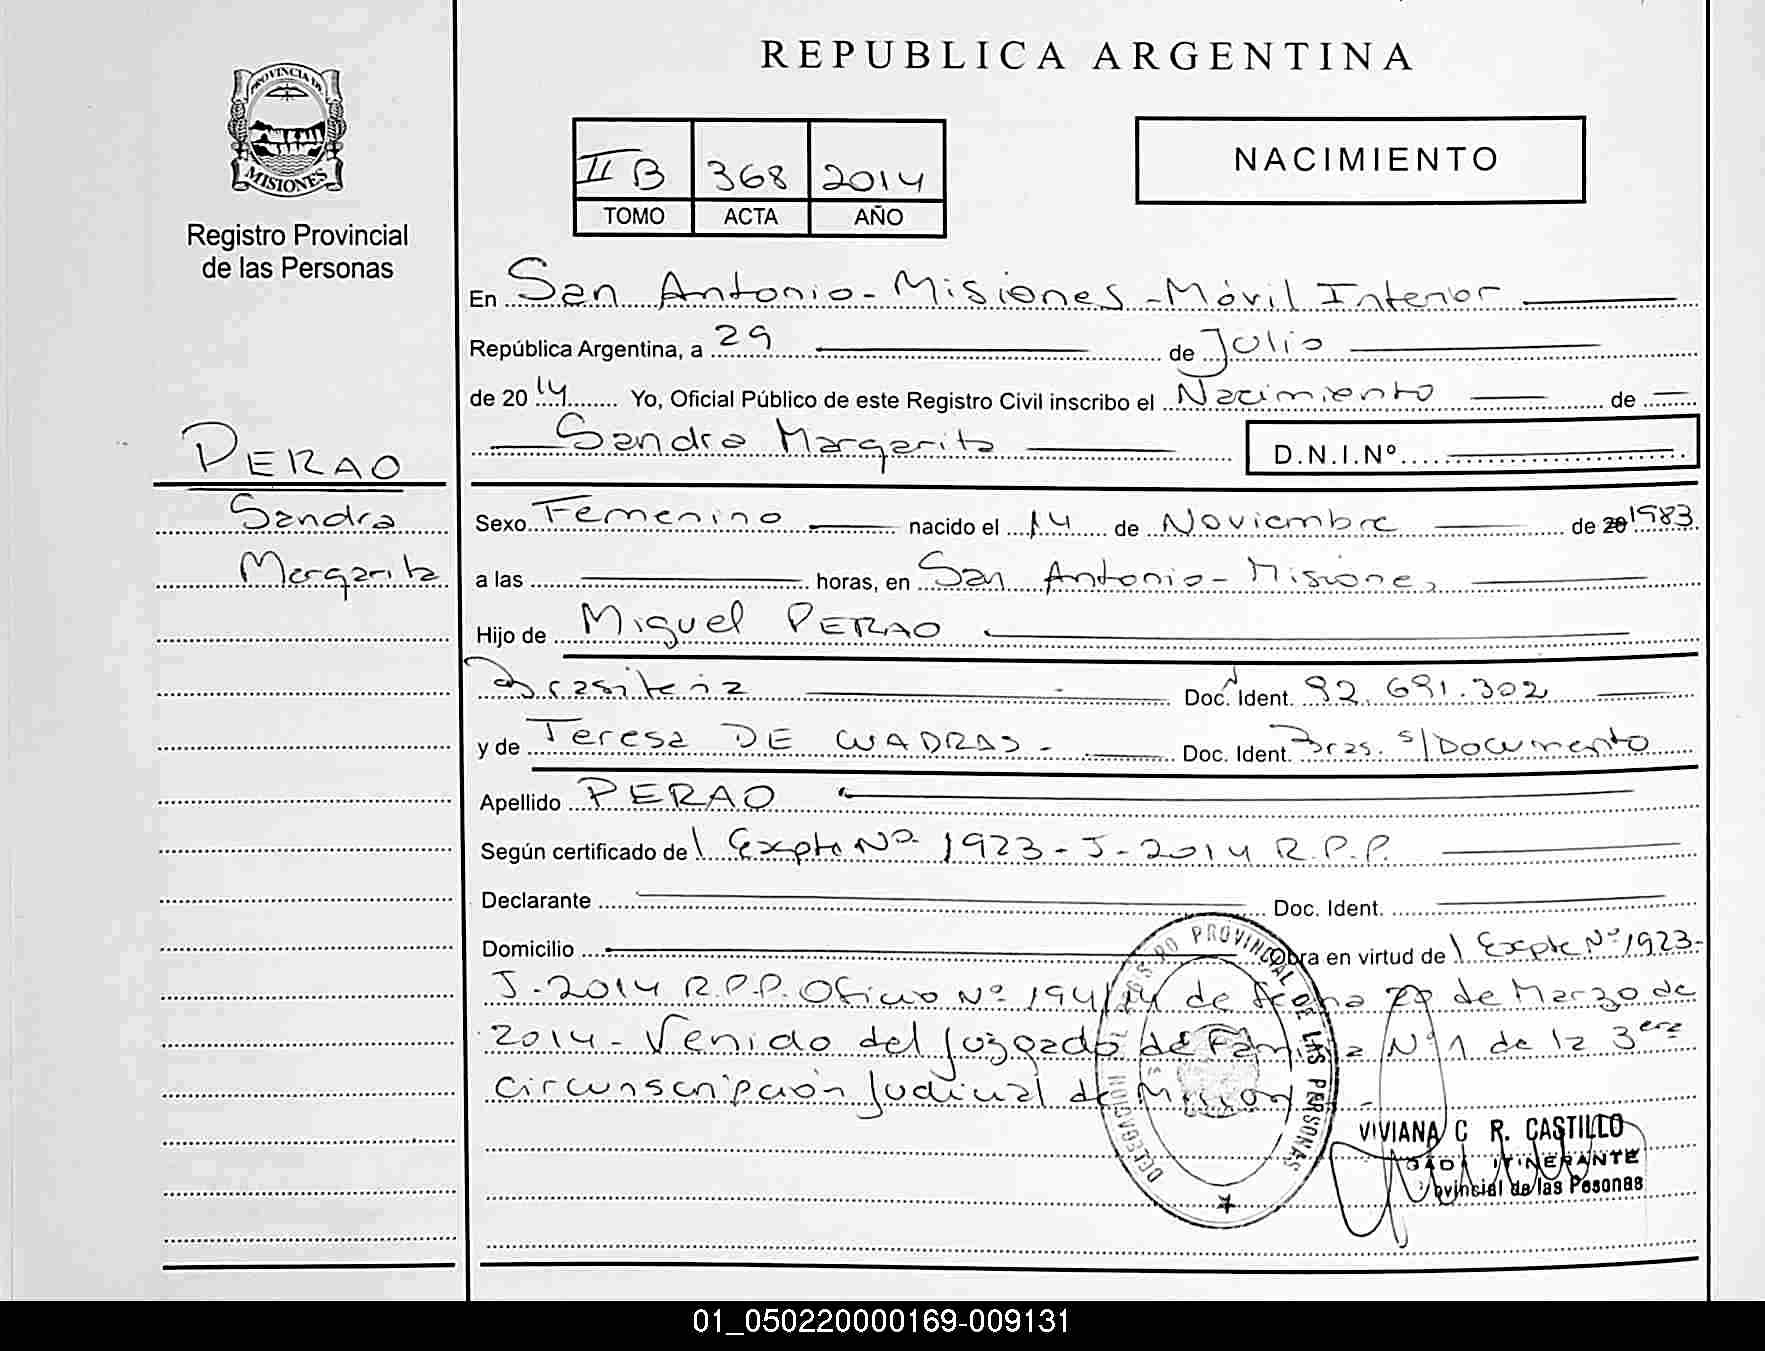 REPUBLICA ARGENTINA
PROVINCIA DE
MISIONES
Registro Provincial
de las Personas
II B 368 2014
TOMO ACTA AÑO
NACIMIENTO
En San Antonio - Misiones - Móvil Interior
República Argentina, a 29 de Julio
de 2014 Yo, Oficial Público de este Registro Civil inscribo el Nacimiento de
Sandra Margarita D.N.I.Nº
PERAO
Sandra
Margarita
Sexo Femenino nacido el 14 de Noviembre de 20 1983
a las horas, en San Antonio - Misiones
Hijo de Miguel PERAO
Brasilera Doc. Ident. 92.691.302
y de Teresa DE CUADRAS - Doc. Ident. Bras. s/Documento
Apellido PERAO
Según certificado de Expte Nº 1923 - J - 2014 R.P.P.
Declarante Doc. Ident.
Domicilio Obra en virtud de Expte Nº 1923-
J-2014 R.P.P. Oficio Nº 194/14 de fecha de Marzo de
2014 - Venido del Juzgado de Familia Nº 1 de la 3era
circunscripción Judicial de Misiones -
DELEGACION REGISTRO PROVINCIAL DE LAS PERSONAS
VIVIANA C R. CASTILLO
ITINERANTE
ovincial de las Pesonas
01_050220000169-009131